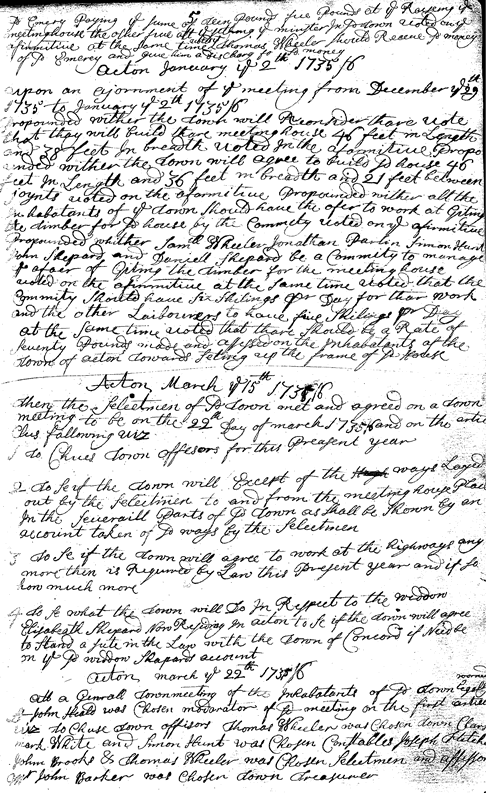 sd Emery Paying ye sume of deen Pound five Pounds at ye Raiseing ye
meetinghouse the other five att Setling ye minister In sd town voted on ye
afirmitive at the Same time voted thomas Wheeler Should Receive sd money
of sd Emerey and give him a discharg for sd money
Acton January ye 2th 1735/6
upon an ajornment of ye meeting from December ye 29
1735 to January ye 2th 1735/6
Propounded wither the town will Reconsider thare vote
that thay will build thare meeting house 46 feet in Length
and 38 feet In breadth voted In the afarmitive Propo
unded wither the town will agree to build sd house 46
feet In Length and 36 feet in breadth and 21 feet between
Joynts voted on the afarmitive Propounded wither all the
Inhabatants of ye town Should have the ofer to work at Geting
the timber for sd house by the Commety voted on ye afirmitive
Propounded whither Samll Wheeler Jonathan Parlin Simon Hunt
John Shepard and Daniell Shepard be a Commity to manage
ye afair of Giting the timber for the meetinghouse
voted on the afirmitive at the Same time voted that the
Commity Should have Six Shilings Per Day for thar work
and the other Laibourers to have five Shilings Per Day
at the Same time voted that thare Should be a Rate of
Seventy Pounds made and assessed on the Inhabatants of the
town of acton towards Seting up the frame of sd House
Acton March ye 15th 1735/6
then the Selectmen of sd town met and agreed on a town
meeting to be on the 22th Day of march 1735/6 and on the arti
cles fallowing viz
1 to Chues town offesors for this Preasent year
2 to Se if the town will Except of the ways Layed
out by the Selectmen to and from the meeting house Place
In the Seueraill Parts of sd town as Shall be Shown by an
account taken of sd ways by the Selectmen
3 to Se if the town will agree to work at the highways any
more then is Required by Law this Present year and if so
how much more
4 to Se what the town will Do In Respect to the widdow
Elizabeath Shepard Now Resideing In acton to Se if the town will agree
to Stand a Sute in the Law with the town of Concord if Need be
on ye sd widdow Shapards account
Acton march ye 22th 1735/6
att a Genrall town meeting of the Inhabatants of sd town
John Heald was Chosen modarator of sd meeting on the first article
viz to Chuse town offisors Thomas Wheeler was Chosen town Clark
mark White and Simon Hunt was Chosen Constables Joseph Fletcher
John Brooks & Thomas Wheeler was Chosen Selectmen and assessors
John Barker was chosen town treasurer